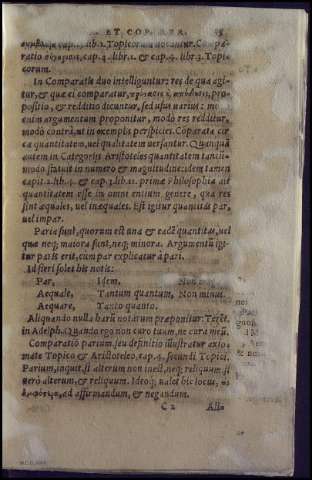 ET COMPARA.
cap. 1. lib. 1. Topicorum vocantur. Compa-
ratio cap. 4. libr. 1. & cap. 4. libr. 3. Topi-
corum.
In Comparatis duo intelliguntur: res de qua agi-
tur, & quæ ei comparatur, pro-
positio, & redditio dicuntur, sed usus varius: nā
enim argumentum proponitur, modò res redditur,
modò contrà, ut in exemplis perspicies. Cōparata cir
ca quantitatem, vel qualitatem versantur. Quanquā
autem in Categoriis Aristoteles quantitatem tantū-
modò statuit in numero & magnitudine: idem tamen
capit. 2. lib. 4. & cap. 3. lib. 11. primæ Philosophiæ ait
quantitatem esse in omni entium genere, qua res
sint æquales, vel inæquales. Est igitur quantitas par,
vel impar.
Paria sunt, quorum est una & eadē quantitas, vel
quæ neq; maiora sunt, neq; minora. Argumentū igi-
tur paris erit, cum par explicatur à pari.
Id fieri solet his notis:
Par, Idem, Non
Aequale, Tantum quantum, Non minus.
Aequare, Tanto quanto.
Aliquando nulla harū notarum præponitur: Terēt.
in Adelph. Quando ego non curo tuum, ne cura meū.
Comparatio parium, seu definitio illustratur axio-
mate Topico & Aristoteleo, cap. 4. secundi Topici.
Parium, inquit, si alterum non inest, neq; reliquum: si
verò alterum, & reliquum. Ideoq; valet hic locus,
ad affirmandum, & negandum.
C 2 Alio